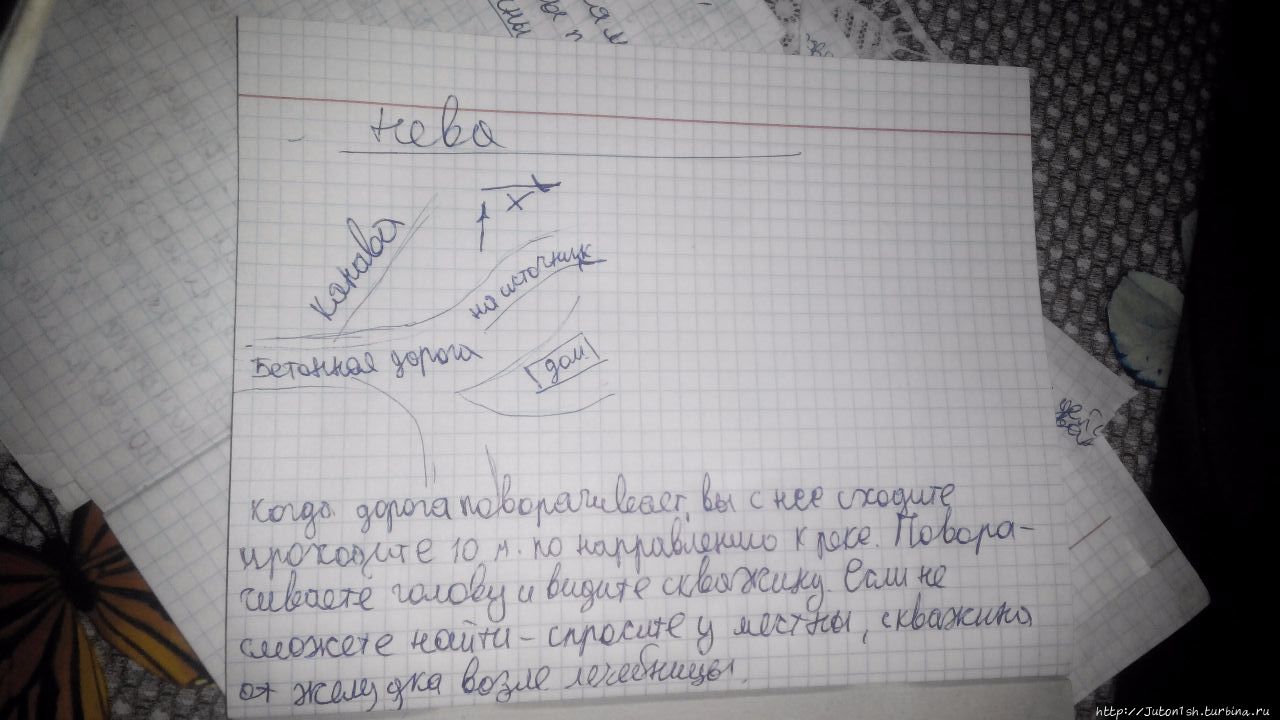 Нева
Канава
на источник
Бетонная дорога
дом
Когда дорога поворачивает, вы с нее сходите
проходите 10 м. по направлению к реке. Повора-
чиваете голову и видите скважину. Если не
сможете найти - спросите у местны, скважина
от желудка возле лечебницы.
http://Juton1sh.turbina.ru